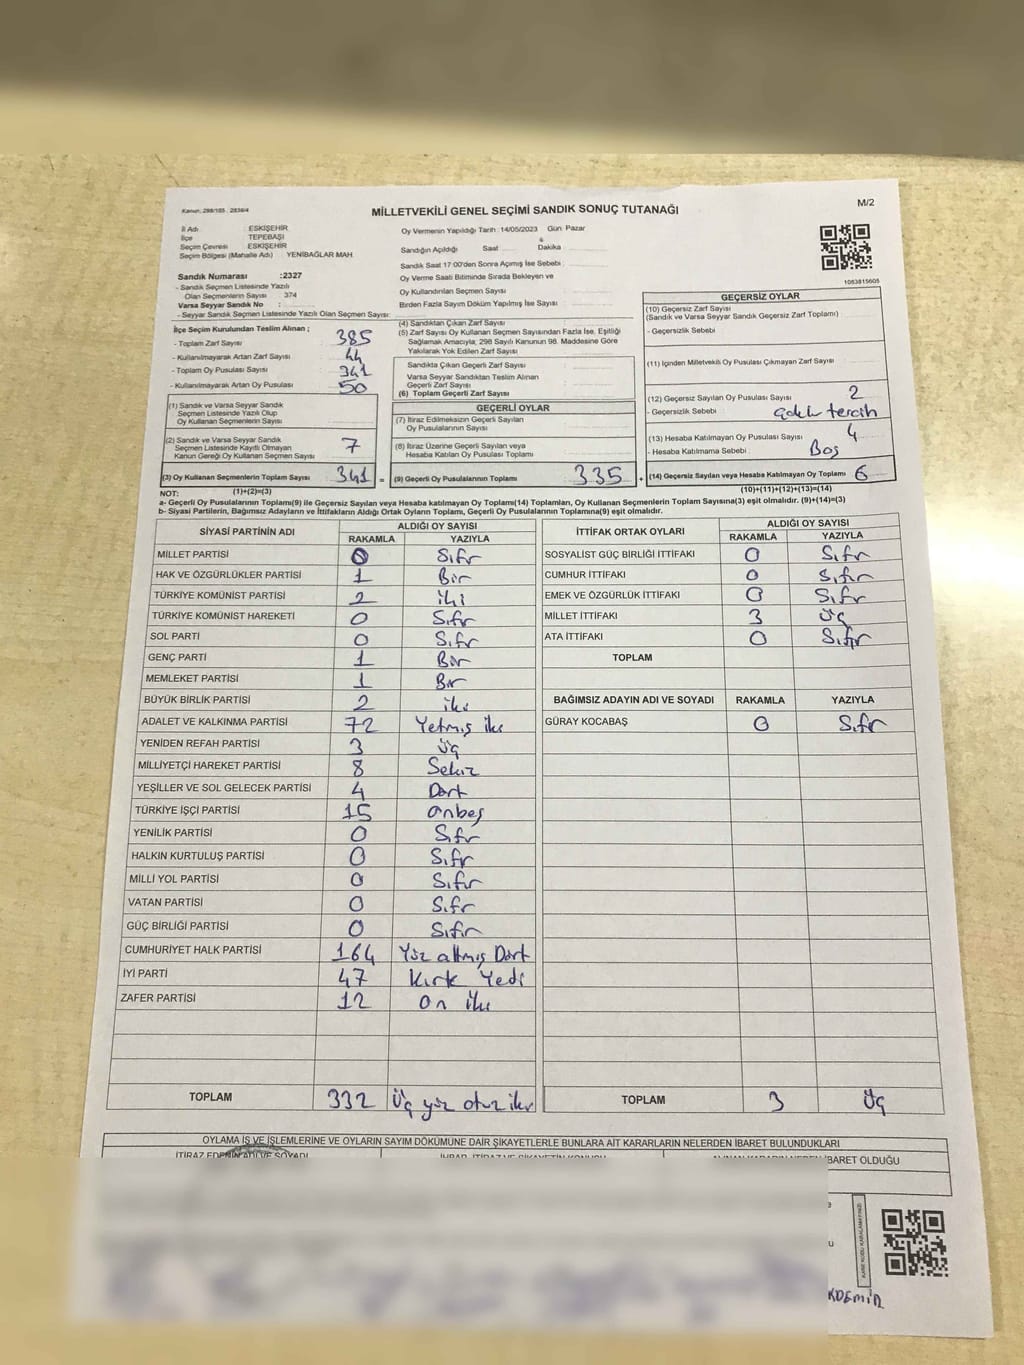 Kanun: 298/105 : 2839/4
MİLLETVEKİLİ GENEL SEÇİMİ SANDIK SONUÇ TUTANAĞI
M/2
İl Adı : ESKİŞEHİR
İlçe : TEPEBAŞI
Seçim Çevresi : ESKİŞEHİR
Seçim Bölgesi (Mahalle Adı) : YENİBAĞLAR MAH.
Oy Vermenin Yapıldığı Tarih : 14/05/2023 Gün Pazar
Sandığın Açıldığı Saat & Dakika
Sandık Saat 17:00'den Sonra Açımış İse Sebebi
Sandık Numarası :2327
- Sandık Seçmen Listesinde Yazılı
Olan Seçmenlerin Sayısı : 374
Varsa Seyyar Sandık No :
- Seyyar Sandık Seçmen Listesinde Yazılı Olan Seçmen Sayısı:
Oy Verme Saati Bitiminde Sırada Bekleyen ve
Oy Kullandırılan Seçmen Sayısı
Birden Fazla Sayım Döküm Yapılmış İse Sayısı
1053815605
İlçe Seçim Kurulundan Teslim Alınan ;
- Toplam Zarf Sayısı 385
- Kullanılmayarak Artan Zarf Sayısı 44
- Toplam Oy Pusulası Sayısı 341
- Kullanılmayarak Artan Oy Pusulası 50
(1) Sandık ve Varsa Seyyar Sandık
Seçmen Listesinde Yazılı Olup
Oy Kullanan Seçmenlerin Sayısı
(2) Sandık ve Varsa Seyyar Sandık
Seçmen Listesinde Kayıtlı Olmayan
Kanun Gereği Oy Kullanan Seçmen Sayısı 7
(3) Oy Kullanan Seçmenlerin Toplam Sayısı 341 =
(1)+(2)=(3)
(4) Sandıktan Çıkan Zarf Sayısı
(5) Zarf Sayısı Oy Kullanan Seçmen Sayısından Fazla İse, Eşitliği
Sağlamak Amacıyla, 298 Sayılı Kanunun 98. Maddesine Göre
Yakılarak Yok Edilen Zarf Sayısı
Sandıkta Çıkan Geçerli Zarf Sayısı
Varsa Seyyar Sandıktan Teslim Alınan
Geçerli Zarf Sayısı
(6) Toplam Geçerli Zarf Sayısı
GEÇERLİ OYLAR
(7) İtiraz Edilmeksizin Geçerli Sayılan
Oy Pusulalarının Sayısı
(8) İtiraz Üzerine Geçerli Sayılan veya
Hesaba Katılan Oy Pusulası Toplamı
(9) Geçerli Oy Pusulalarının Toplamı 335 +
GEÇERSİZ OYLAR
(10) Geçersiz Zarf Sayısı
(Sandık ve Varsa Seyyar Sandık Geçersiz Zarf Toplamı)
- Geçersizlik Sebebi
(11) İçinden Milletvekili Oy Pusulası Çıkmayan Zarf Sayısı
(12) Geçersiz Sayılan Oy Pusulası Sayısı 2
- Geçersizlik Sebebi tercih
(13) Hesaba Katılmayan Oy Pusulası Sayısı 4
- Hesaba Katılmama Sebebi Boş
(14) Geçersiz Sayılan veya Hesaba Katılmayan Oy Toplamı 6
(10)+(11)+(12)+(13)=(14)
NOT:
a- Geçerli Oy Pusulalarının Toplamı(9) ile Geçersiz Sayılan veya Hesaba katılmayan Oy Toplamı(14) Toplamları, Oy Kullanan Seçmenlerin Toplam Sayısına(3) eşit olmalıdır. (9)+(14)=(3)
b- Siyasi Partilerin, Bağımsız Adayların ve İttifakların Aldığı Ortak Oyların Toplamı, Geçerli Oy Pusulalarının Toplamına(9) eşit olmalıdır.
SİYASİ PARTİNİN ADI ALDIĞI OY SAYISI
RAKAMLA YAZIYLA
MİLLET PARTİSİ 0 Sıfır
HAK VE ÖZGÜRLÜKLER PARTİSİ 1 Bir
TÜRKİYE KOMÜNİST PARTİSİ 2 iki
TÜRKİYE KOMÜNİST HAREKETİ 0 Sıfır
SOL PARTİ 0 Sıfır
GENÇ PARTİ 1 Bir
MEMLEKET PARTİSİ 1 Bir
BÜYÜK BİRLİK PARTİSİ 2 iki
ADALET VE KALKINMA PARTİSİ 72 Yetmiş iki
YENİDEN REFAH PARTİSİ 3 Üç
MİLLİYETÇİ HAREKET PARTİSİ 8 Sekiz
YEŞİLLER VE SOL GELECEK PARTİSİ 4 Dört
TÜRKİYE İŞÇİ PARTİSİ 15 onbeş
YENİLİK PARTİSİ 0 Sıfır
HALKIN KURTULUŞ PARTİSİ 0 Sıfır
MİLLİ YOL PARTİSİ 0 Sıfır
VATAN PARTİSİ 0 Sıfır
GÜÇ BİRLİĞİ PARTİSİ 0 Sıfır
CUMHURİYET HALK PARTİSİ 164 Yüz altmış Dört
İYİ PARTİ 47 Kırk Yedi
ZAFER PARTİSİ 12 on iki
TOPLAM 332 Üç yüz otuz iki
İTTİFAK ORTAK OYLARI ALDIĞI OY SAYISI
RAKAMLA YAZIYLA
SOSYALİST GÜÇ BİRLİĞİ İTTİFAKI 0 Sıfır
CUMHUR İTTİFAKI 0 Sıfır
EMEK VE ÖZGÜRLÜK İTTİFAKI 0 Sıfır
MİLLET İTTİFAKI 3 Üç
ATA İTTİFAKI 0 Sıfır
TOPLAM
BAĞIMSIZ ADAYIN ADI VE SOYADI RAKAMLA YAZIYLA
GÜRAY KOCABAŞ 0 Sıfır
TOPLAM 3 Üç
OYLAMA İŞ VE İŞLEMLERİNE VE OYLARIN SAYIM DÖKÜMÜNE DAİR ŞİKAYETLERLE BUNLARA AİT KARARLARIN NELERDEN İBARET BULUNDUKLARI
İTİRAZ EDENİN ADI VE SOYADI
İBARET OLDUĞU
KDEMİR